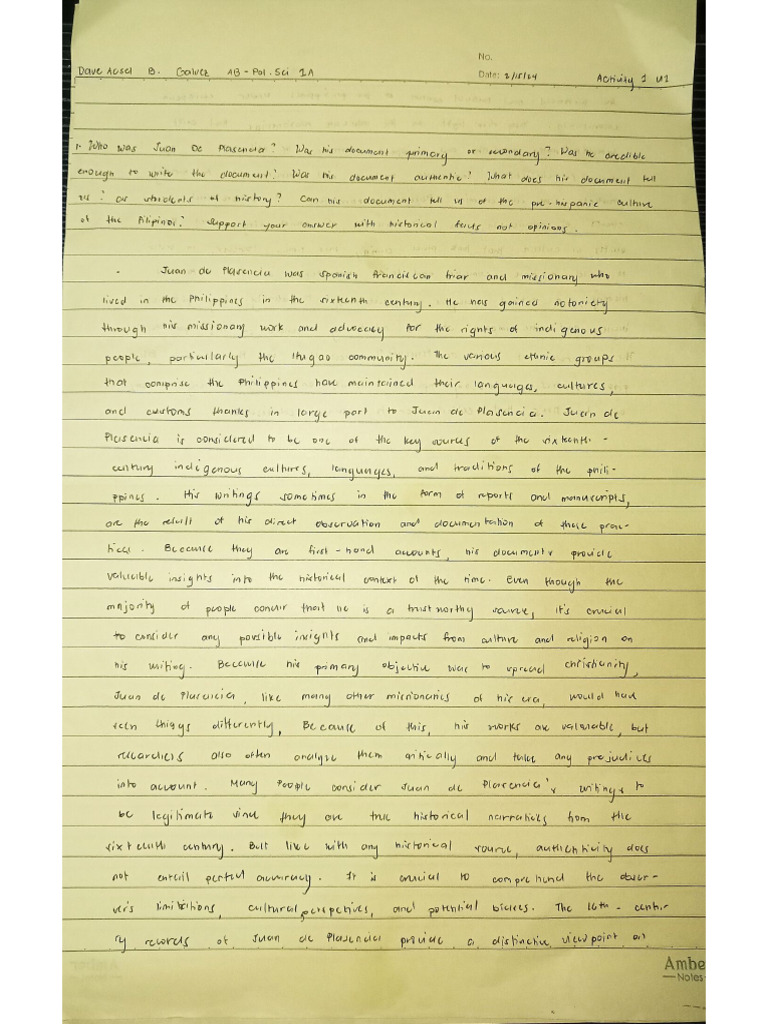 No.
Dave Acsel B. Galvez AB - Pol. Sci 1A Date: 2/15/24 Activity 1 U2
1. Who was Juan De Plasencia? Was his document primary or secondary? Was he credible
enough to write the document? Was his document authentic? What does his document tell
us? as students of history? Can his document tell us of the pre-hispanic culture
of the Filipinos? Support your answer with historical facts not opinions.
- Juan de Plasencia was spanish franciscan friar and missionary who
lived in the Philippines in the sixteenth century. He has gained notoriety
through his missionary work and advocacy for the rights of indigenous
people, particularly the Ifugao community. The various ethnic groups
that comprise the Philippines have maintained their languages, cultures,
and customs thanks in large part to Juan de Plasencia. Juan de
Plasencia is considered to be one of the key sources of the sixteenth -
century indigenous cultures, languages, and traditions of the phili-
ppines. His writings sometimes in the form of reports and manuscripts,
are the result of his direct observation and documentation of these prac-
tices. Because they are first-hand accounts, his documents provide
valuable insights into the historical context of the time. Even though the
majority of people concur that he is a trustworthy source, it's crucial
to consider any possible insights and impacts from culture and religion on
his writing. Because his primary objective was to spread christianity,
Juan de Plasencia, like many other missionaries of his era, would have
seen things differently, Because of this, his works are valuable, but
researchers also often analyze them critically and take any prejudices
into account. Many People consider Juan de Plasencia's writings to
be legitimate since they are true historical narratives from the
sixteenth century. But like with any historical source, authenticity does
not entail perfect accuracy. It is crucial to comprehend the obser-
ver's limitations, cultural perspectives, and potential biases. The 16th - centu-
ry records of Juan de Plasencia provide a distinctive viewpoint on
Ambe
Notes